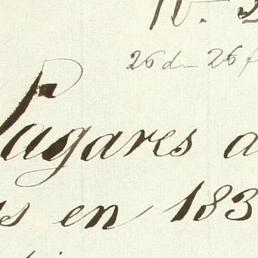 Nº.
26d - 26f
Pagares a
s en 183